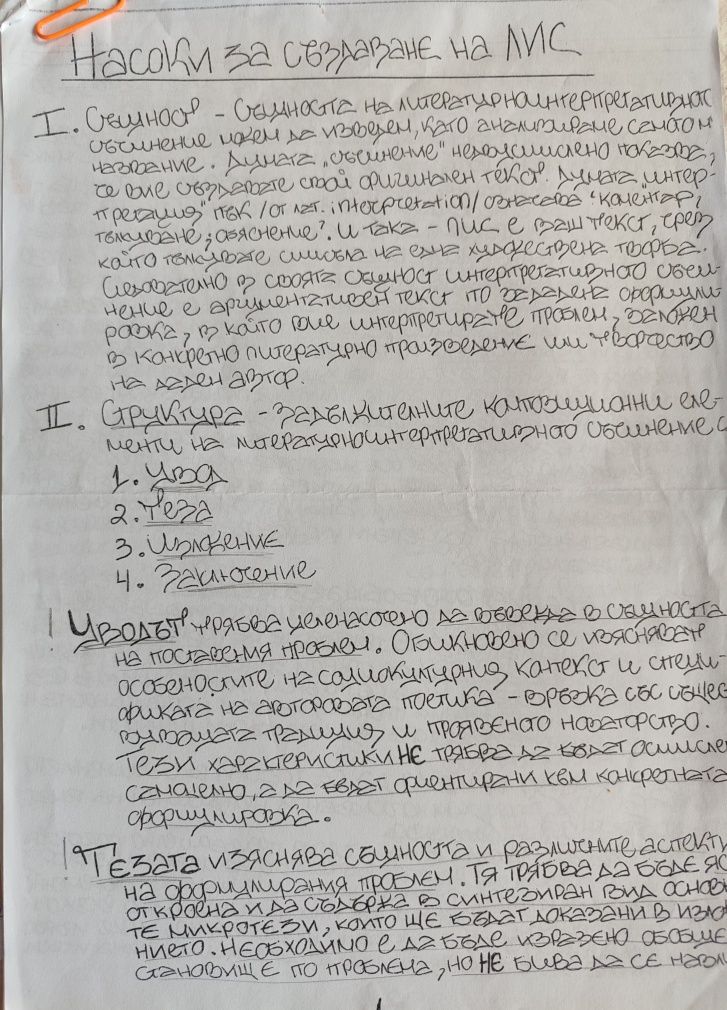 Насоки за създаване на ЛИС
I. Същност - Същността на литературноинтерпретативнот
съчинение можем да изведем, като анализираме самото м
название. Думата „съчинение" недвусмислено показва,
че вие създавате свой оригинален текст. Думата „интер-
претация" пък /от лат. interpretation/ означава 'коментар,
тълкуване; обяснение'. И така - ЛИС е ваш текст, чрез
който тълкувате смисъла на една художествена творба.
Следователно в своята същност интерпретативното съчи-
нение е аргументативен текст по зададена формули-
ровка, в който вие интерпретирате проблем, заложен
в конкретно литературно произведение или творчество
на даден автор.
II. Структура - задължителните композиционни еле-
менти на литературноинтерпретативното съчинение с
1. Увод
2. Теза
3. Изложение
4. Заключение
! Уводът трябва целенасочено да въвежда в същността
на поставения проблем. Обикновено се изясняват
особеностите на социокултурния контекст и специ-
фиката на авторовата поетика - връзка със същес
вуващата традиция и проявеното новаторство.
Тези характеристики НЕ трябва да бъдат осмисле
самоцелно, а да бъдат ориентирани към конкретната
формулировка.
! Тезата изяснява същността и различните аспекти
на формулирания проблем. Тя трябва да бъде яс
откроена и да съдържа в синтезиран вид основн
те микротези, които ще бъдат доказани в изло
нието. Необходимо е да бъде изразено обобще
становище по проблема, но НЕ бива да се навл